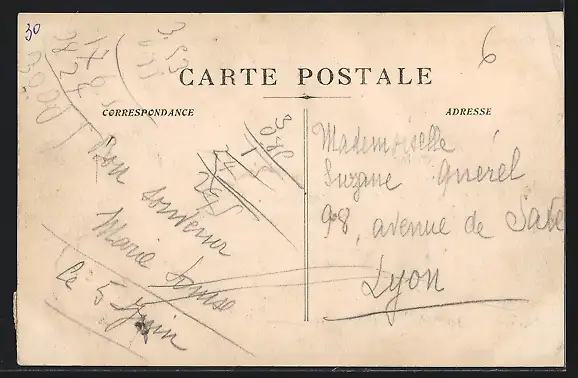 30
6
CARTE POSTALE
CORRESPONDANCE
ADRESSE
Bon souvenir
Marie Louise
Ce 5 Juin
Mademoiselle
Suzane Quérel
98, avenue de Saxe
Lyon